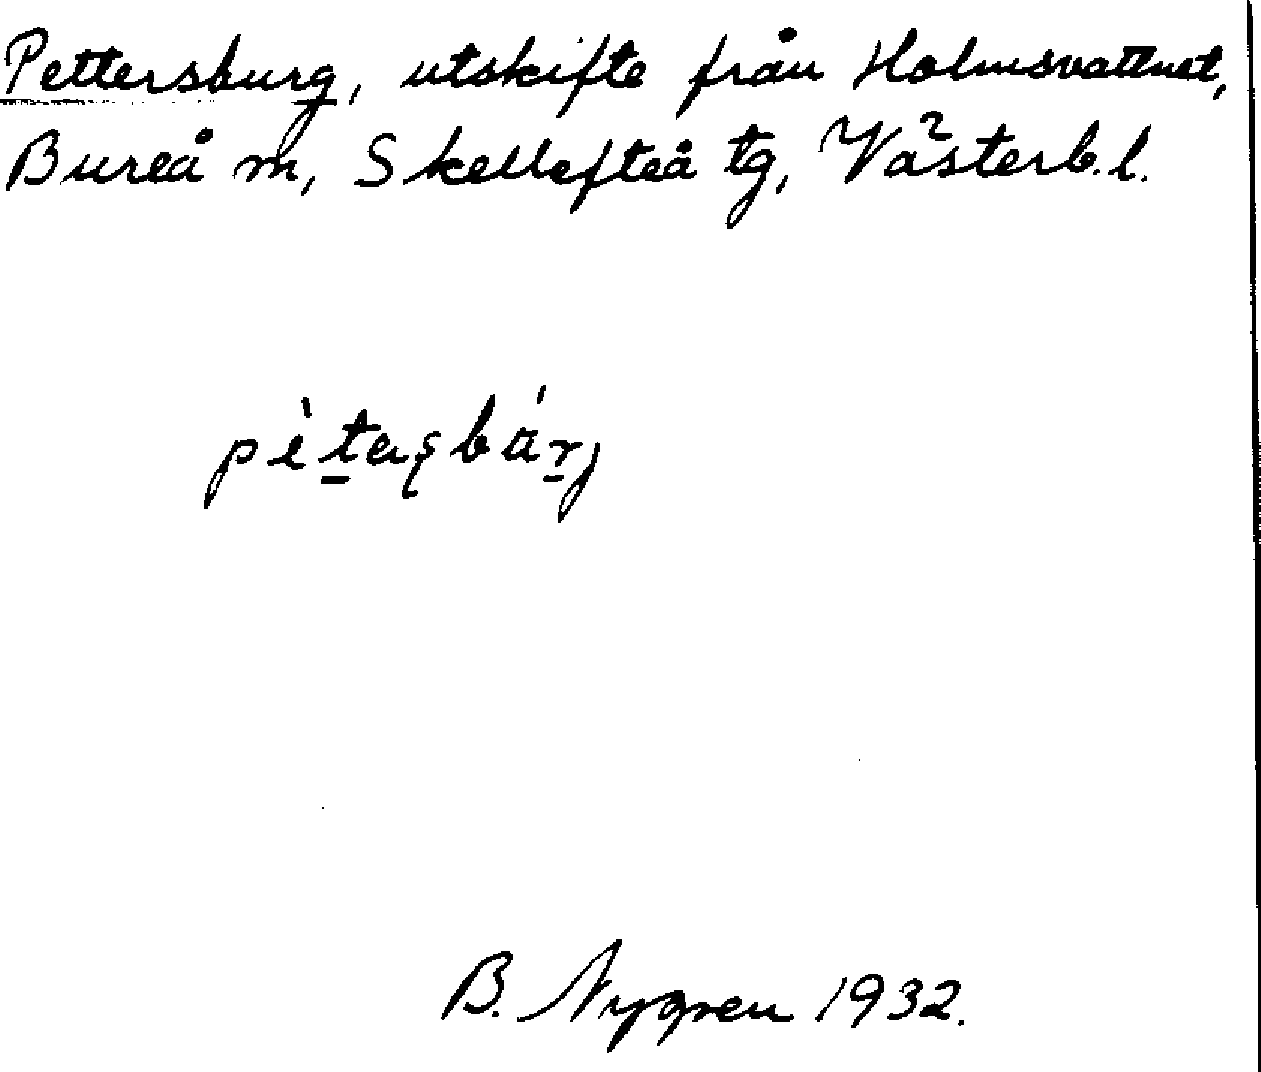 Pettersburg, utskifte från Holmsvattnet,
Bureå m, Skellefteå tg, Västerb. l.
B. Nygren 1932.